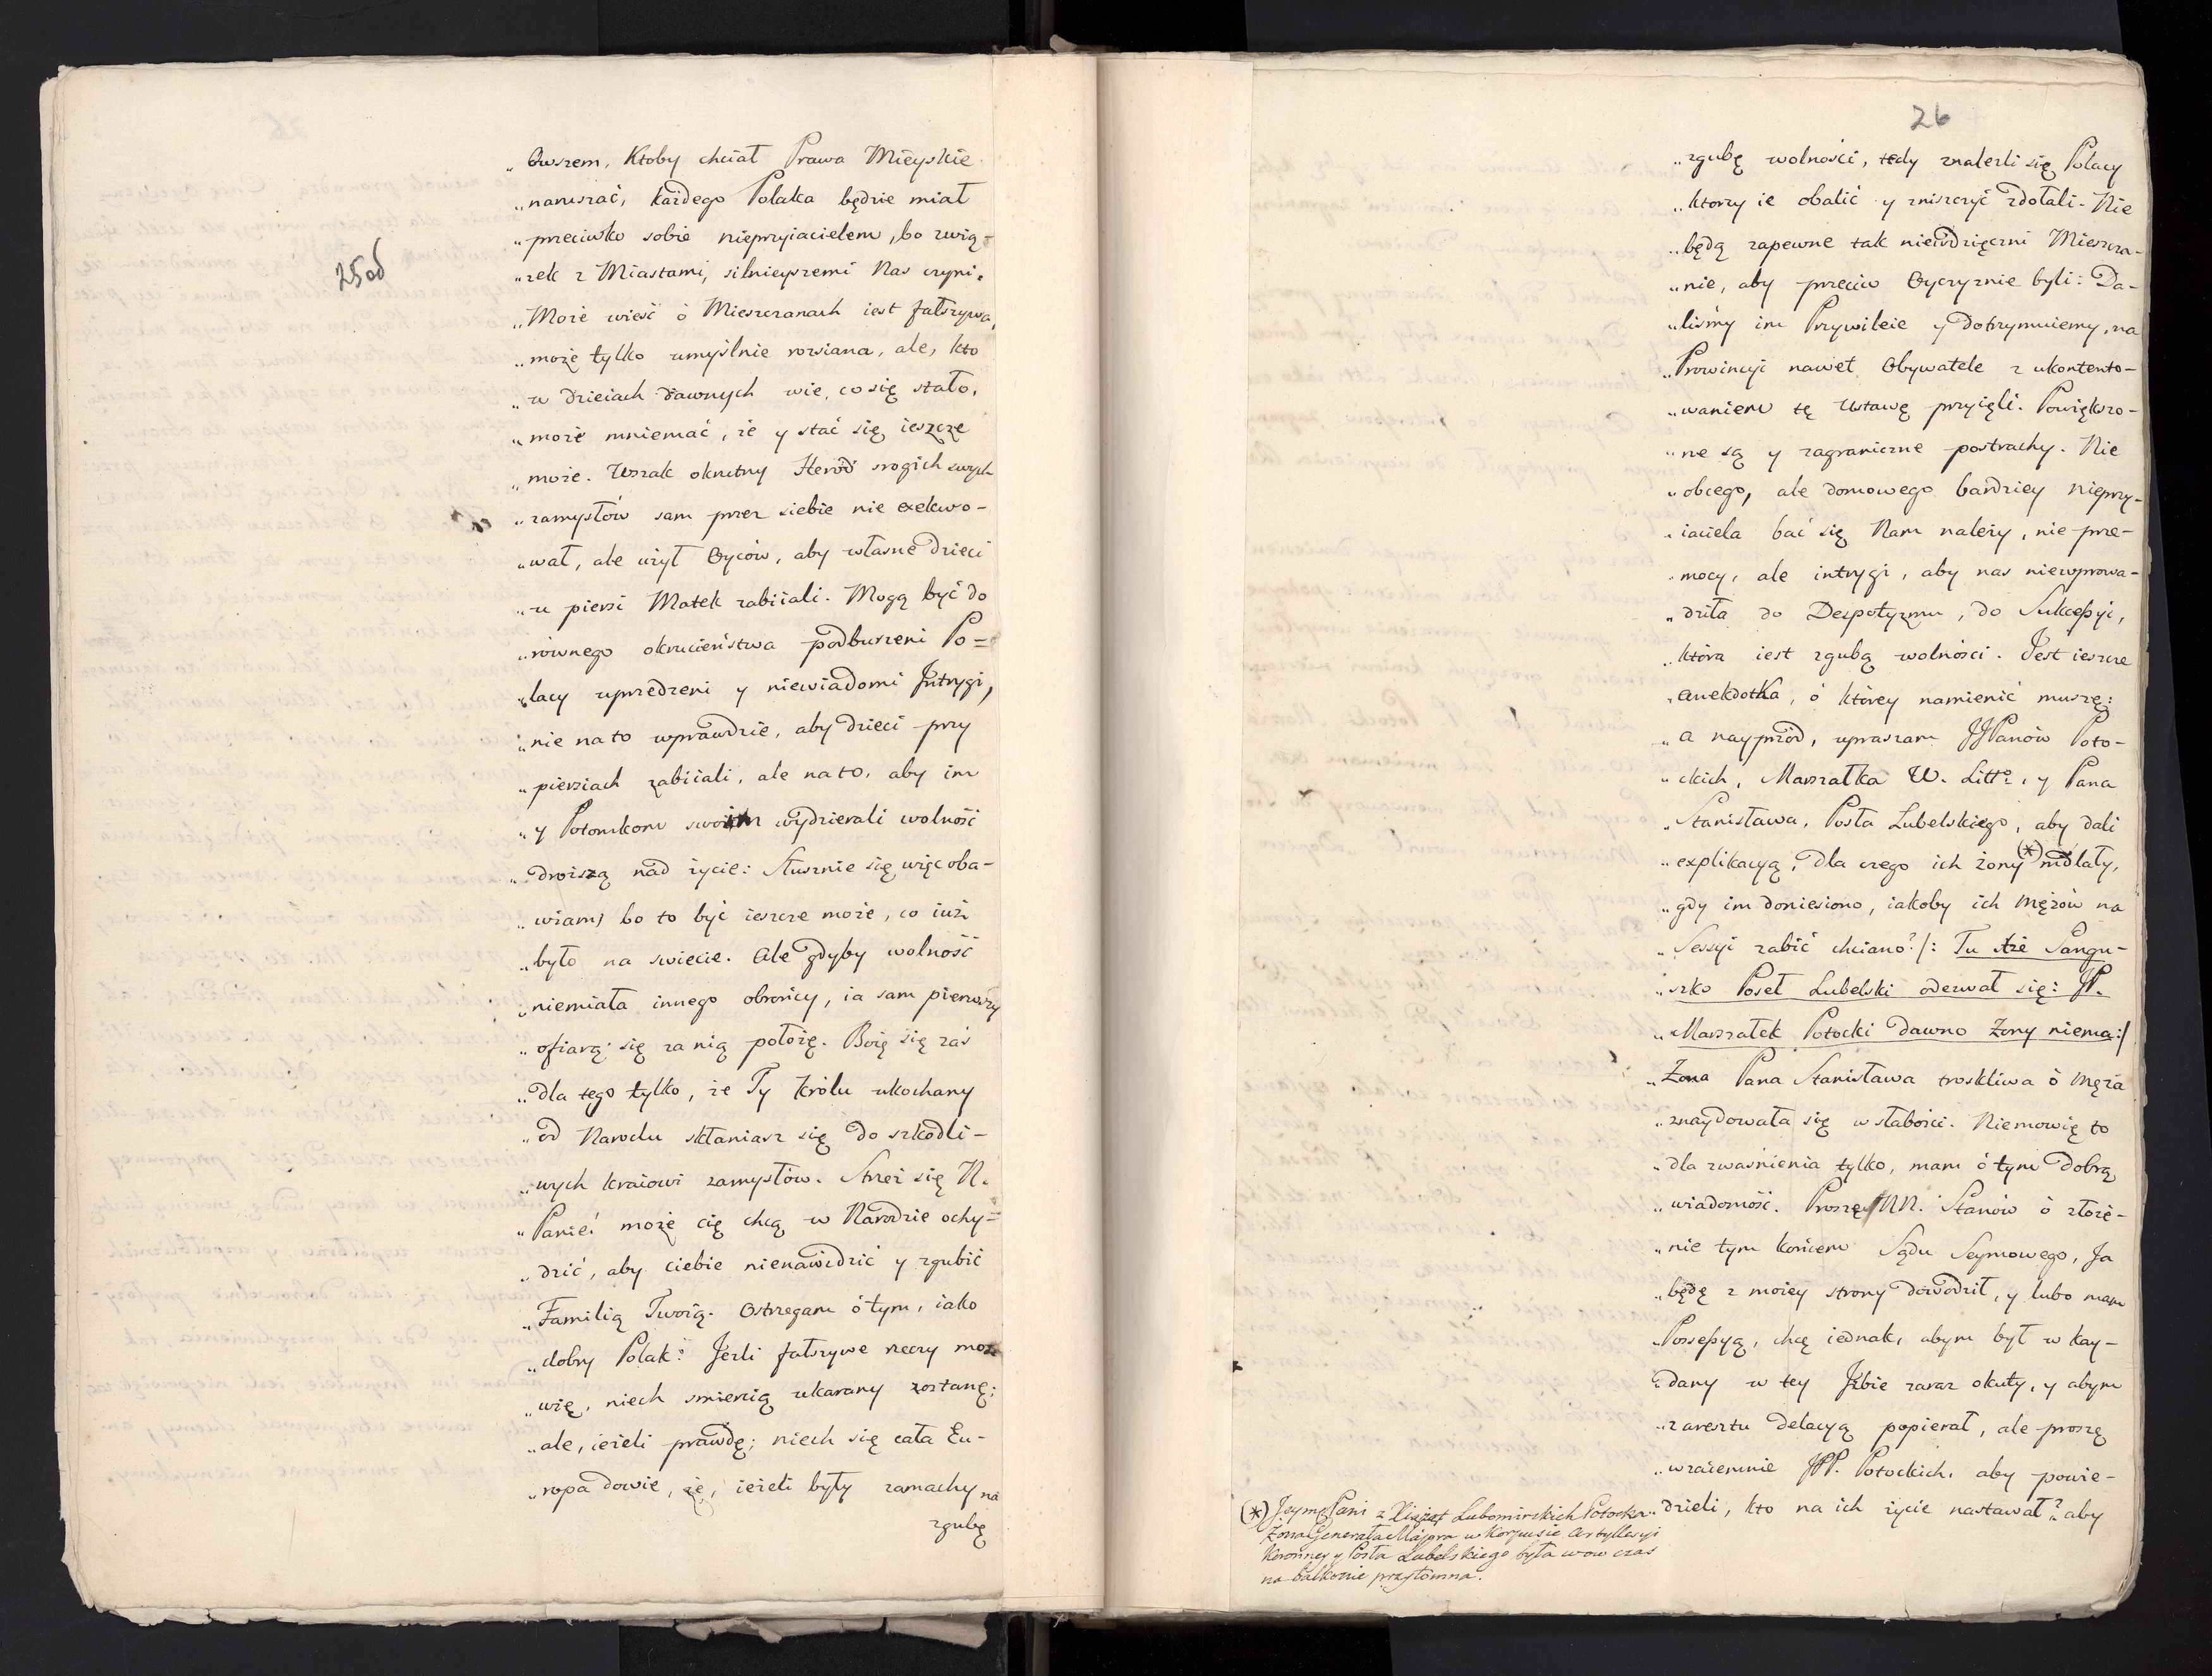 25od
„Owszem, Ktoby chciał Prawa Mieyskie
„naruszać, każdego Polaka będzie miał
„przeciwko sobie nieprzyiacielem, bo zwią-
„zek z Miastami, silnieyszemi Nas czyni.
„Może wieść ó Mieszczanach iest fałszywa,
„może tylko umyślnie rozsiana, ale, kto
„w Dzieiach dawnych wie, co się stało,
„może mniemać, że y stać się ieszcze
„może. Wszak okrutny Heród srogich swych
„zamysłów sam przez siebie nie exekwo-
„wał, ale użył Oyców, aby własne Dzieci
„u piersi Matek zabiiali. Mogą być do
„równego okrucieństwa podburzeni Po=
„lacy uprzedzeni y niewiadomi Intrygi,
„nie na to wprawdzie, aby dzieci przy
„piersiach zabiiali, ale na to, aby im
„y Potomkom swoim wydzierali wolność
„droższą nad życie: Słusznie się więc oba-
„wiam, bo to być ieszcze może, co iuż
„było na swiecie. Ale gdyby wolność
„niemiała innego obrońcy, ia sam pierwszy
„ofiarą się za nią położę. Boię się zaś
„Dla tego tylko, że Ty Królu ukochany
„od Narodu skłaniasz się do szkodli-
„wych kraiowi zamysłów. Strzeż się N.
„Panie! może cię chcą w Narodzie ochy-
„dzić, aby ciebie nienawidzić y zgubić
„Familią Twoią. Ostrzegam ó tym, iako
„dobry Polak: Jeżli fałszywe rzeczy mó-
„wię, niech smiercią ukarany zostanę;
„ale, ieżeli prawdę; niech się cała Eu-
„ropa dowie, że, ieżeli były zamachy na
zgubę
26
„zgubę wolności, tedy znależli się Polacy
„ktorzy ie obalić y zniszczyć zdołali. Nie
„będą zapewne tak niewdzięczni Mieszcza-
„nie, aby przeciw Oyczyznie byli: Da-
„liśmy im Przywileie y Dotrzymuiemy, na
„Prowincyi nawet Obywatele z ukontento-
„waniem tę Ustawę przyięli. Powiększo-
„ne są y zagraniczne postrachy. Nie
„obcego, ale domowego bardziey nieprzy-
„iaciela bać się Nam należy, nie prze-
„mocy, ale intrygi, aby nas niewprowa-
„dziła do Despotyzmu, do Sukceßyi,
„która iest zgubą wolności. Jest ieszcze
„anekdotka, ó którey namienić muszę:
„a nayprzód, upraszam JJPanów Poto-
„ckich, Marszałka W. Litt°, y Pana
„Stanisława, Posła Lubelskiego, aby dali
„explikacyą, Dla czego ich żony (*) mdlały,
„gdy im doniesiono, iakoby ich Mężów na
„Sessyi zabić chciano? /: Tu Xże Sangu-
„szko Poseł Lubelski odezwał się: JP.
„Marszałek Potocki dawno Żony niema:/
„Żona Pana Stanisława troskliwa ó Męża
„znaydowała się w słabości. Niemowię to
„dla zwaśnienia tylko, mam ó tym dobrą
„wiadomość. Proszę NN. Stanów ó złoże-
„nie tym końcem Sądu Seymowego, Ja
„będę z moiey strony dowodził, y lubo mam
„Posseßyą, chcę iednak, abym był w kay-
„dany w tey Jzbie zaraz okuty, y abym
„z aresztu delacyą popierał, ale proszę
„wzaiemnie JPP. Potockich, aby powie-
„dzieli, kto na ich życie nastawał? aby
(*) Jeymć Pani z Xiążąt Lubomirskich Potocka
Żona Generała Majora w Korpusie Artylleryi
Koronney y Posła Lubelskiego była wow czas
na balkonie przytomna.